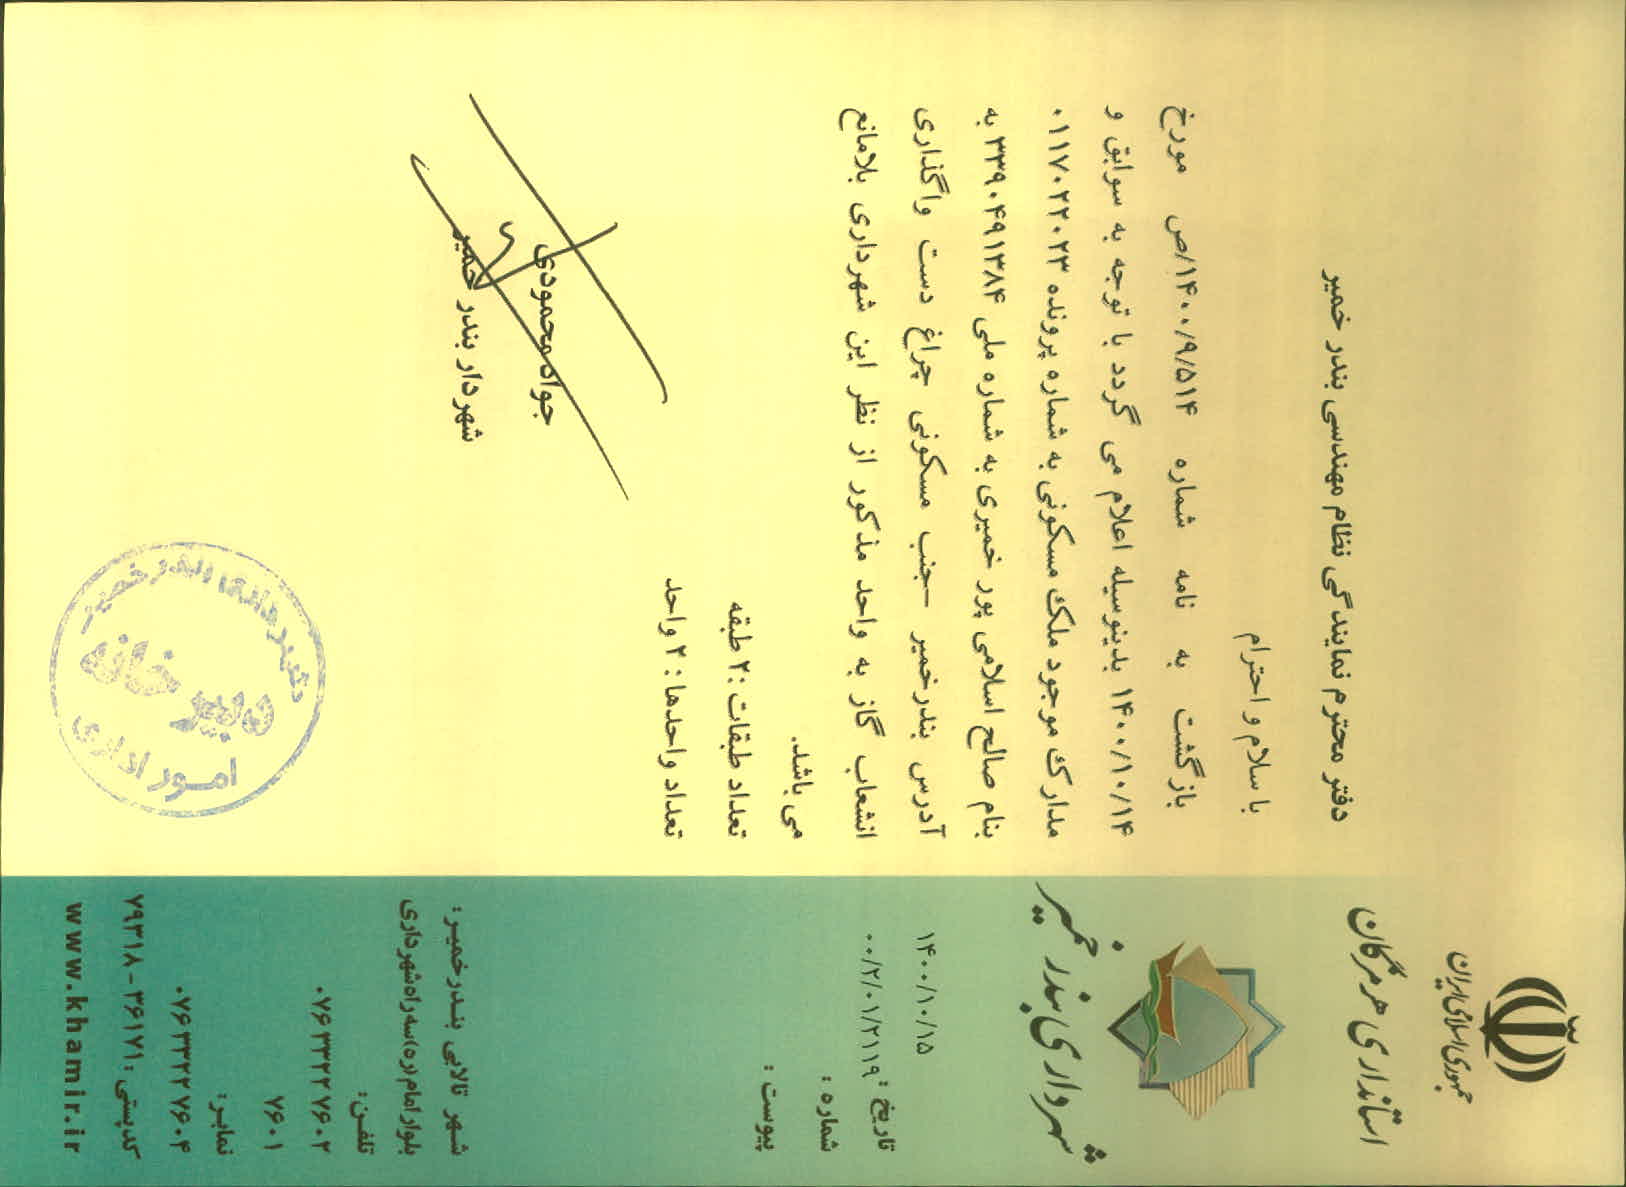 جمهوری اسلامی ایران
استانداری هرمزگان
شهرداری بندر خمیر
۱۴۰۰/۱۰/۱۵
تاریخ :
۰۰/۲/۰۱/۲۱۱۹
شماره :
پیوست :
دفتر محترم نمایندگی نظام مهندسی بندر خمیر
با سلام و احترام
بازگشت به نامه شماره ۱۴۰۰/۹/۵۱۴/ص مورخ
۱۴۰۰/۱۰/۱۴ بدینوسیله اعلام می گردد با توجه به سوابق و
مدارک موجود ملک مسکونی به شماره پرونده ۰۱۱۷۰۲۲۰۲۳
بنام صالح اسلامی پور خمیری به شماره ملی ۳۳۹۰۴۹۱۳۸۴ به
آدرس بندرخمیر -جنب مسکونی چراغ دست واگذاری
انشعاب گاز به واحد مذکور از نظر این شهرداری بلامانع
می باشد.
تعداد طبقات :۲ طبقه
تعداد واحدها : ۲ واحد
جواد محمودی
شهردار بندر خمیر
شهرداری بندر خمیر
دبیرخانه
امور اداری
شهر تالابی بندرخمیر :
بلوار امام (ره) سه راه شهرداری
تلفن:
۰۷۶۳۳۲۲۷۶۰۲
۷۶۰۱
نمابر:
۰۷۶۳۳۲۲۷۶۰۴
کدپستی : ۳۶۱۷۱ - ۷۹۳۱۸
www.khamir.ir